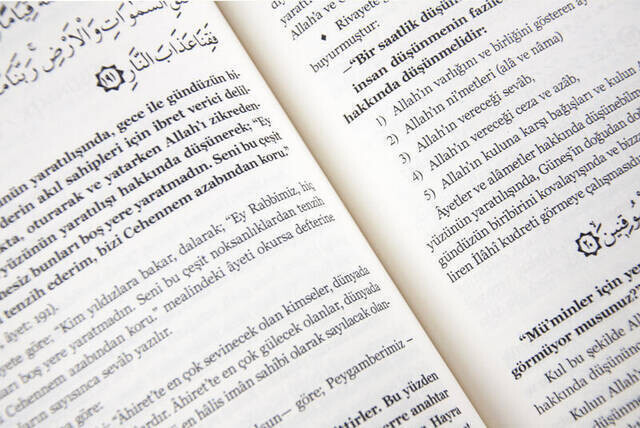 السَّمٰوَاتِ وَالْاَرْضِ رَبَّنَا مَا
فَقِنَا عَذَابَ النَّارِ ﴿١٩١﴾
yaratılışında, gece ile gündüzün bi-
akıl sahipleri için ibret verici delil-
oturarak ve yatarken Allah'ı zikreden-
yüzünün yaratılışı hakkında düşünerek; "Ey
bunları boş yere yaratmadın. Seni bu çeşit
tenzih ederim, bizi Cehennem azabından koru."
âyet: 191).
göre; "Kim yıldızlara bakar, dalarak; "Ey Rabbimiz, hiç
boş yere yaratmadın. Seni bu çeşit noksanlıklardan tenzih
Cehennem azabından koru." mealindeki âyeti okursa defterine
sayısınca sevâb yazılır.
göre:
"Âhiret'te en çok sevinecek olan kimseler, dünyada
Âhiret'te en çok gülecek olanlar, dünyada
en hâlis imân sahibi olarak sayılacak olan-
göre; Peygamberimiz —
Bu yüzden
anahtar
Hayra
Allah'a ve
♦ Rivayete
buyurmuştur:
—"Bir saatlik düşün
insan düşünmenin fazile
hakkında düşünmelidir:
1) Allah'ın varlığını ve birliğini gösteren ây
2) Allah'ın ni'metleri (alâ ve nâma)
3) Allah'ın vereceği sevâb,
4) Allah'ın vereceği ceza ve azâb,
5) Allah'ın kuluna karşı bağışları ve kulun A
Âyetler ve alâmetler hakkında düşünebilme
yüzünün yaratılışında. Güneş'in doğudan do
gündüzün biribirini kovalayışında ve bizz
liren İlâhî kudreti görmeye çalışması
﴿٢٠﴾
"Mü'minler için ye
görmüyor musunuz
Kul bu şekilde A
hakkında düşünün
Kulun Allah